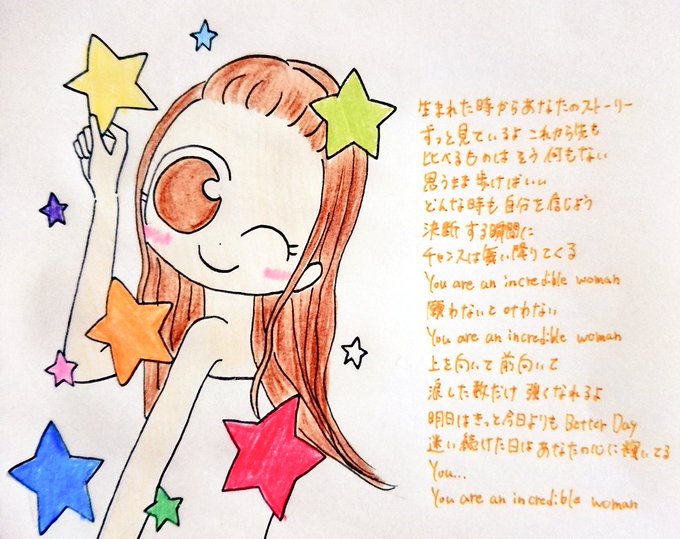 生まれた時からあなたのストーリー
ずっと見ているよ これから先も
比べるものはもう何もない
思うまま歩けばいい
どんな時も自分を信じよう
決断する瞬間に
チャンスは舞い降りてくる
You are an incredible woman
願わないと叶わない
You are an incredible woman
上を向いて前向いて
涙した数だけ強くなれるよ
明日はきっと今日よりも Better Day
迷い続けた日はあなたの心に輝いてる
You...
You are an incredible woman